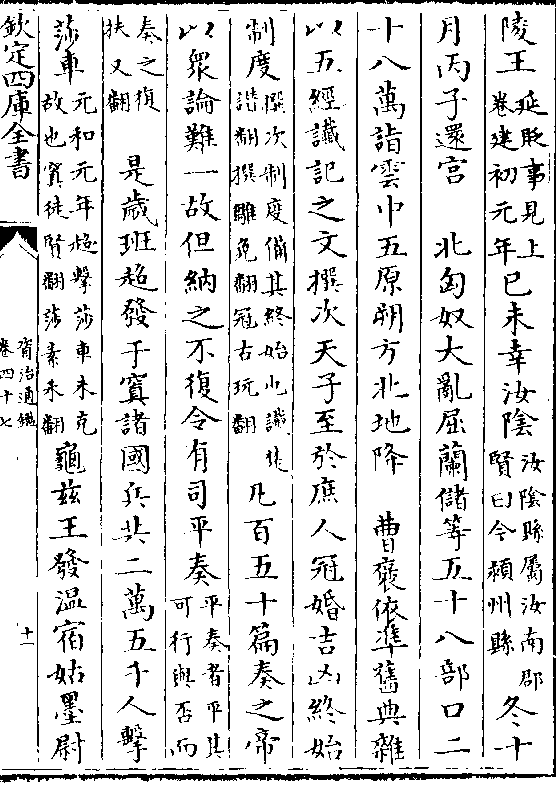 陵王延貶事見上卷建初元年己未幸汝陰汝陰縣屬汝南郡賢曰今潁州縣冬十
月丙子還宮　北匈奴大亂屈蘭儲等五十八部口二
十八萬詣雲中五原朔方北地降　曹褒依準舊典雜
以五經讖記之文撰次天子至於庶人冠婚吉凶終始
制度撰次制度備其終始也讖楚譖翻撰雛免翻冠古玩翻凡百五十篇奏之帝
以衆論難一故但納之不復令有司平奏平奏者平其可行與否而
奏之復扶又翻　是歲班超發于窴諸國兵共二萬五千人擊
莎車元和元年超擊莎車未克故也窴徒賢翻莎素禾翻龜兹王發溫宿姑墨尉
欽定四庫全書
資治通鑑
卷四十七
十一